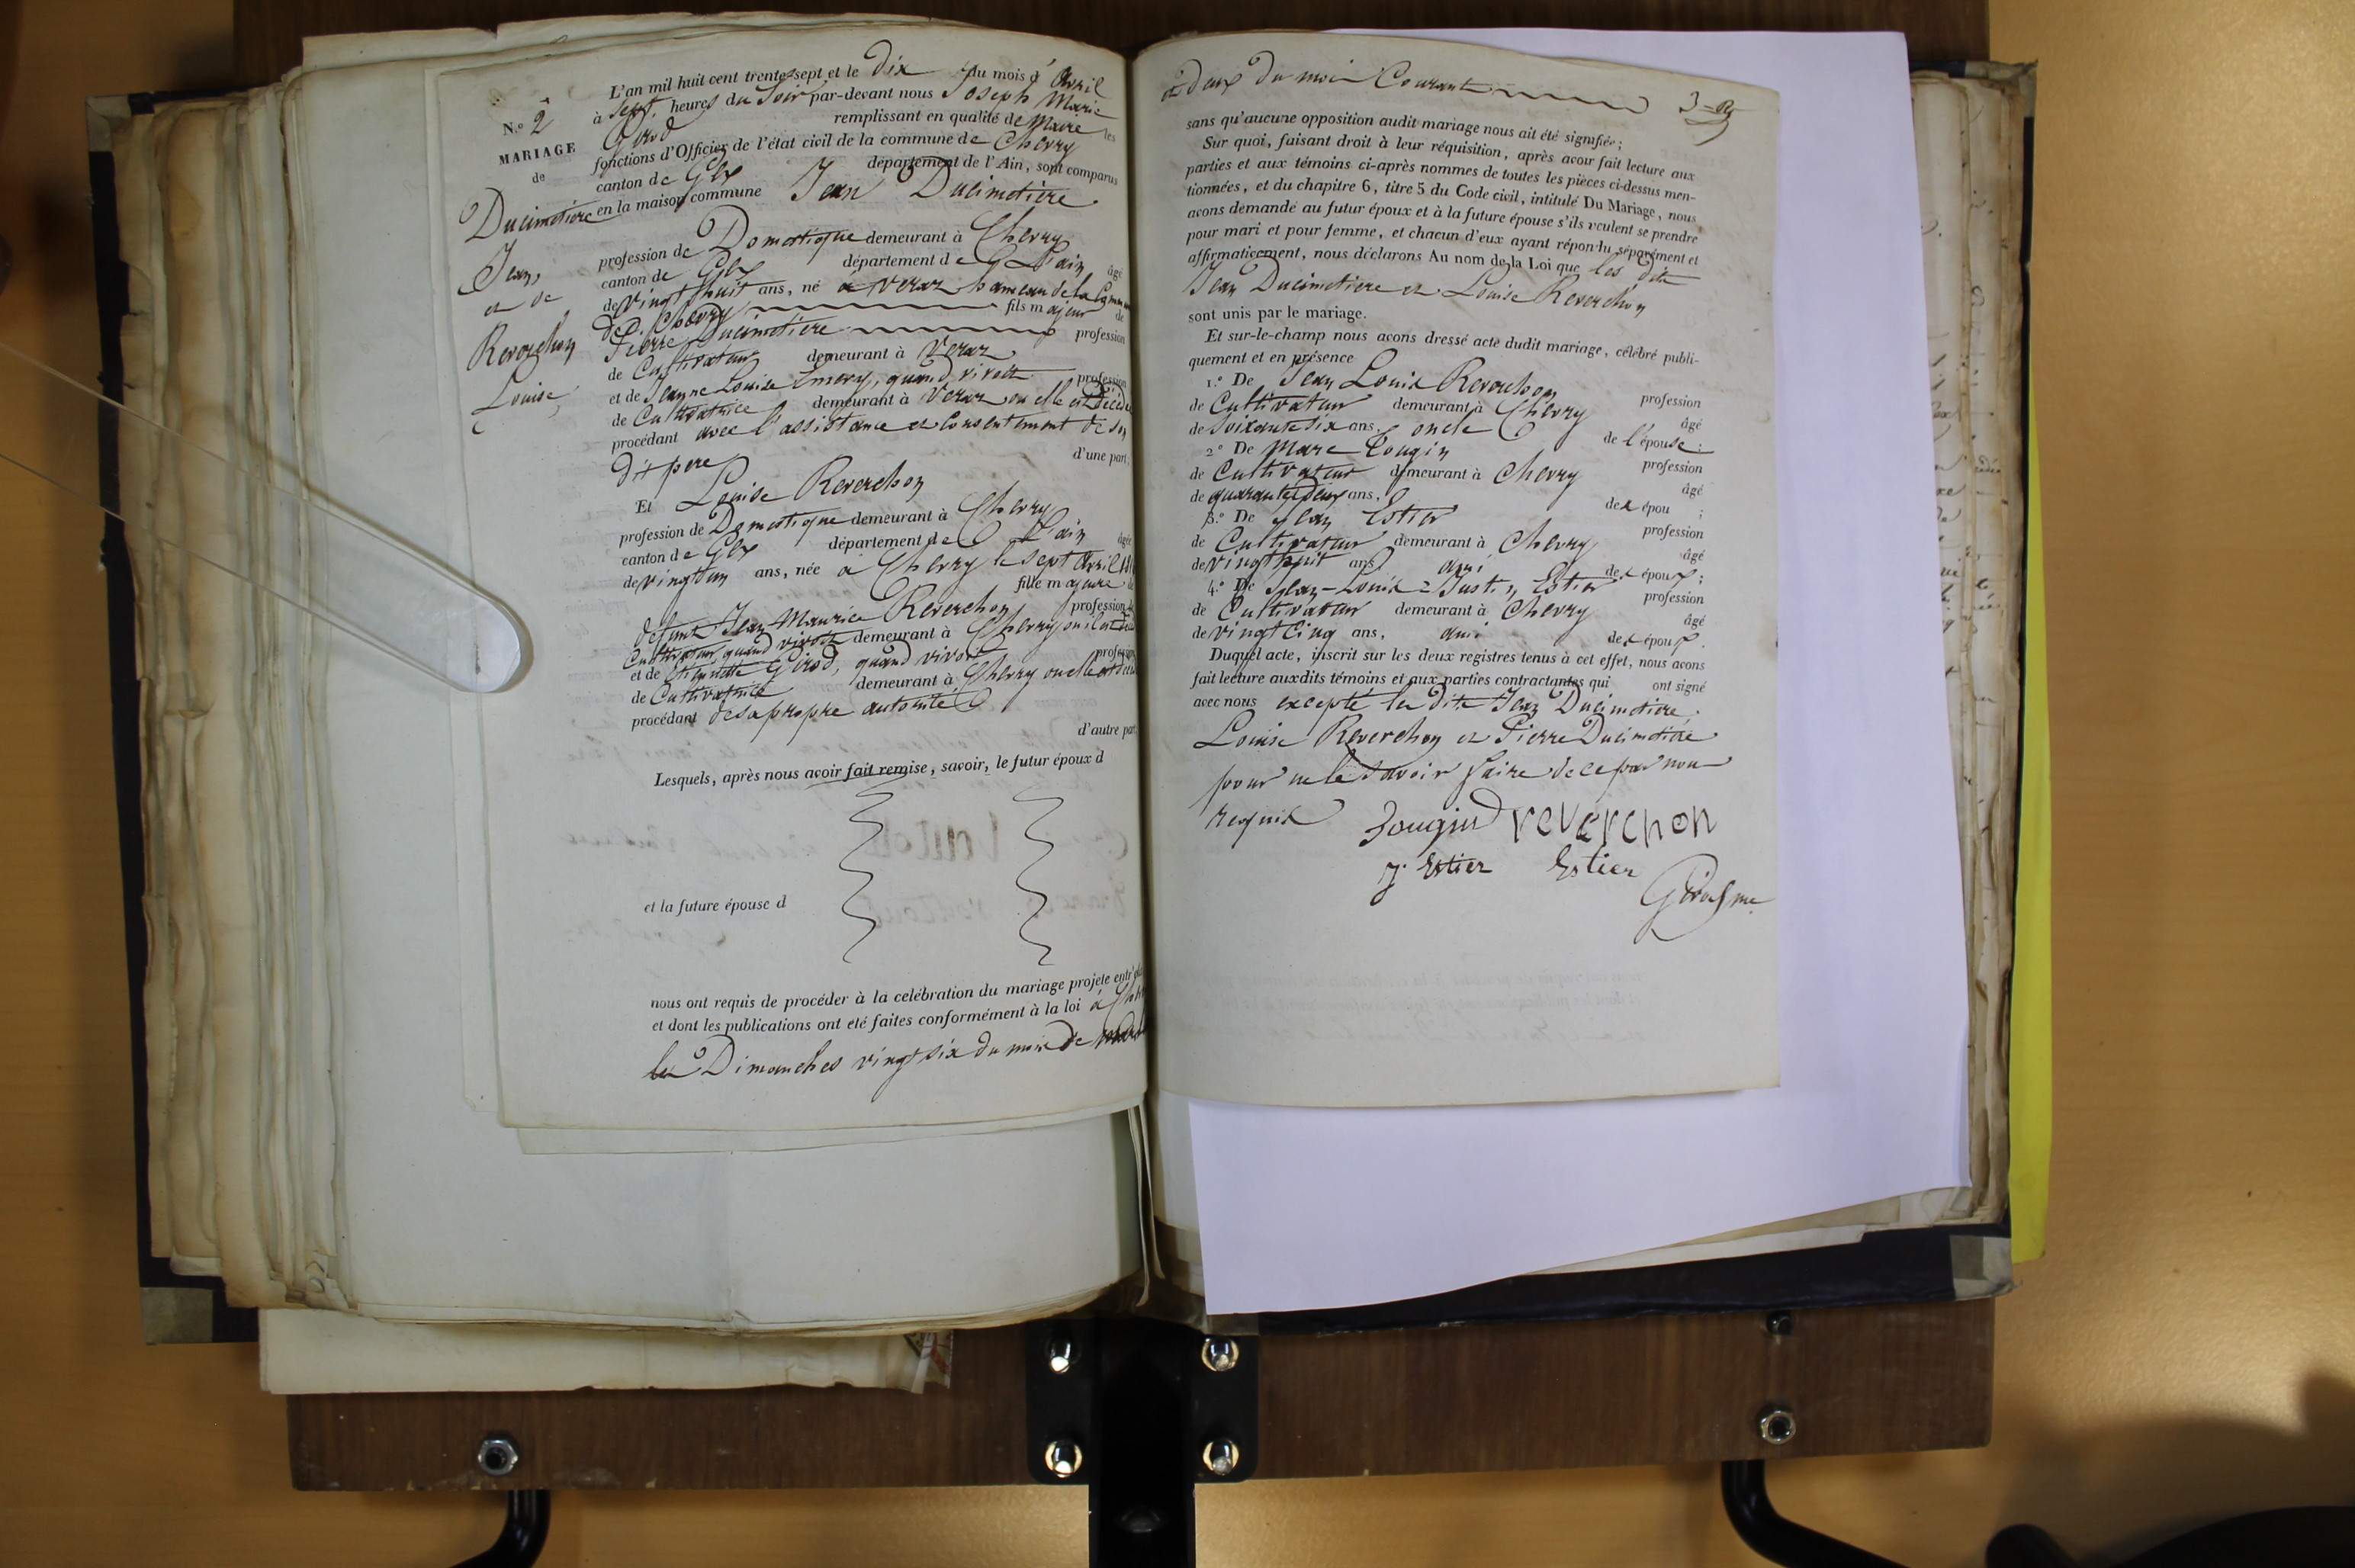 N.o 2
MARIAGE
de
Ducimetiere
Jean,
et de
Reverchon
Louise,
L'an mil huit cent trente-sept et le Dix du mois d'Avril
à Sept heures du Soir par-devant nous Joseph Marie
Girod remplissant en qualité de Maire les
fonctions d'Officier de l'état civil de la commune de Chevry
canton de Gex département de l'Ain, sont comparus
en la maison commune Jean Ducimetiere
profession de Domestique demeurant à Chevry
canton de Gex département de L'ain âgé
de vingt huit ans, né a Veraz hameau de la Commune
de Chevry fils majeur de
Pierre Ducimetiere profession
de Cultivateur demeurant à Veraz
et de Jeanne Louise Emery, quand vivoit profession
de Cultivatrice demeurant à Veraz ou elle est Décédée
procédant avec l'assistance et Consentement de son
dit pere d'une part;
Et Louise Reverchon
profession de Domestique demeurant à Chevry
canton de Gex département de L'ain âgée
de vingt un ans, née a Chevry le sept Avril
fille majeure de
defunt Jean Maurice Reverchon profession de
Cultivateur quand vivoit demeurant à Chevry ou il est
et de Etiennette Girod, quand vivoit profession
de Cultivatrice demeurant à Chevry ou elle est
procédant desapropre autorité
d'autre part.
Lesquels, après nous avoir fait remise, savoir, le futur époux d
et la future épouse d
nous ont requis de procéder à la celébration du mariage projete entr'eux
et dont les publications ont été faites conformément à la loi à
les Dimanches vingt six du mois de mars
et deux du mois Courant
sans qu'aucune opposition audit mariage nous ait été signifiée;
Sur quoi, faisant droit à leur réquisition, après avoir fait lecture aux
parties et aux témoins ci-après nommes de toutes les pièces ci-dessus men-
tionnées, et du chapitre 6, titre 5 du Code civil, intitulé Du Mariage, nous
avons demandé au futur époux et à la future épouse s'ils veulent se prendre
pour mari et pour femme, et chacun d'eux ayant répondu séparément et
affirmativement, nous déclarons Au nom de la Loi que les dits
Jean Ducimetiere et Louise Reverchon
sont unis par le mariage.
Et sur-le-champ nous avons dressé acte dudit mariage, célébré publi-
quement et en présence
1.o De Jean Louis Reverchon profession
de Cultivateur demeurant à Chevry âgé
de Soixante six ans, oncle de l'épouse;
2.o De Marc Tougin profession
de Cultivateur demeurant à Chevry âgé
de quarante deux ans, de épou ;
3.o De Jean Estier profession
de Cultivateur demeurant à Chevry âgé
de vingt huit ans ami des époux;
4.o De Jean-Louis = Justin Estier profession
de Cultivateur demeurant à Chevry âgé
de vingt Cinq ans, ami des époux.
Duquel acte, inscrit sur les deux registres tenus à cet effet, nous avons
fait lecture auxdits témoins et aux parties contractantes qui ont signé
avec nous excepté les dits Jean Ducimetiere,
Louise Reverchon et Pierre Ducimetiere
pour ne le Savoir faire de ce par nous
requis
Tougin reverchon
j. Estier Estier
Girod, me